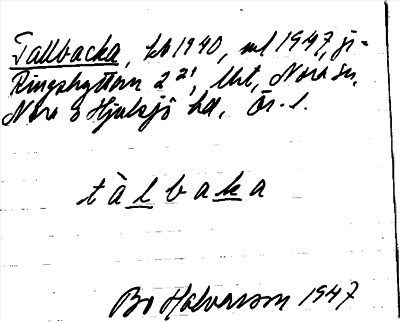 Tallbacka, kb 1940, ml 1947, ji-
Ringshyttan 2 21, lht, Nora sn,
Nora o Hjulsjö hd, Ör. l.
tàlbaka
Bo Halvarsson 1947